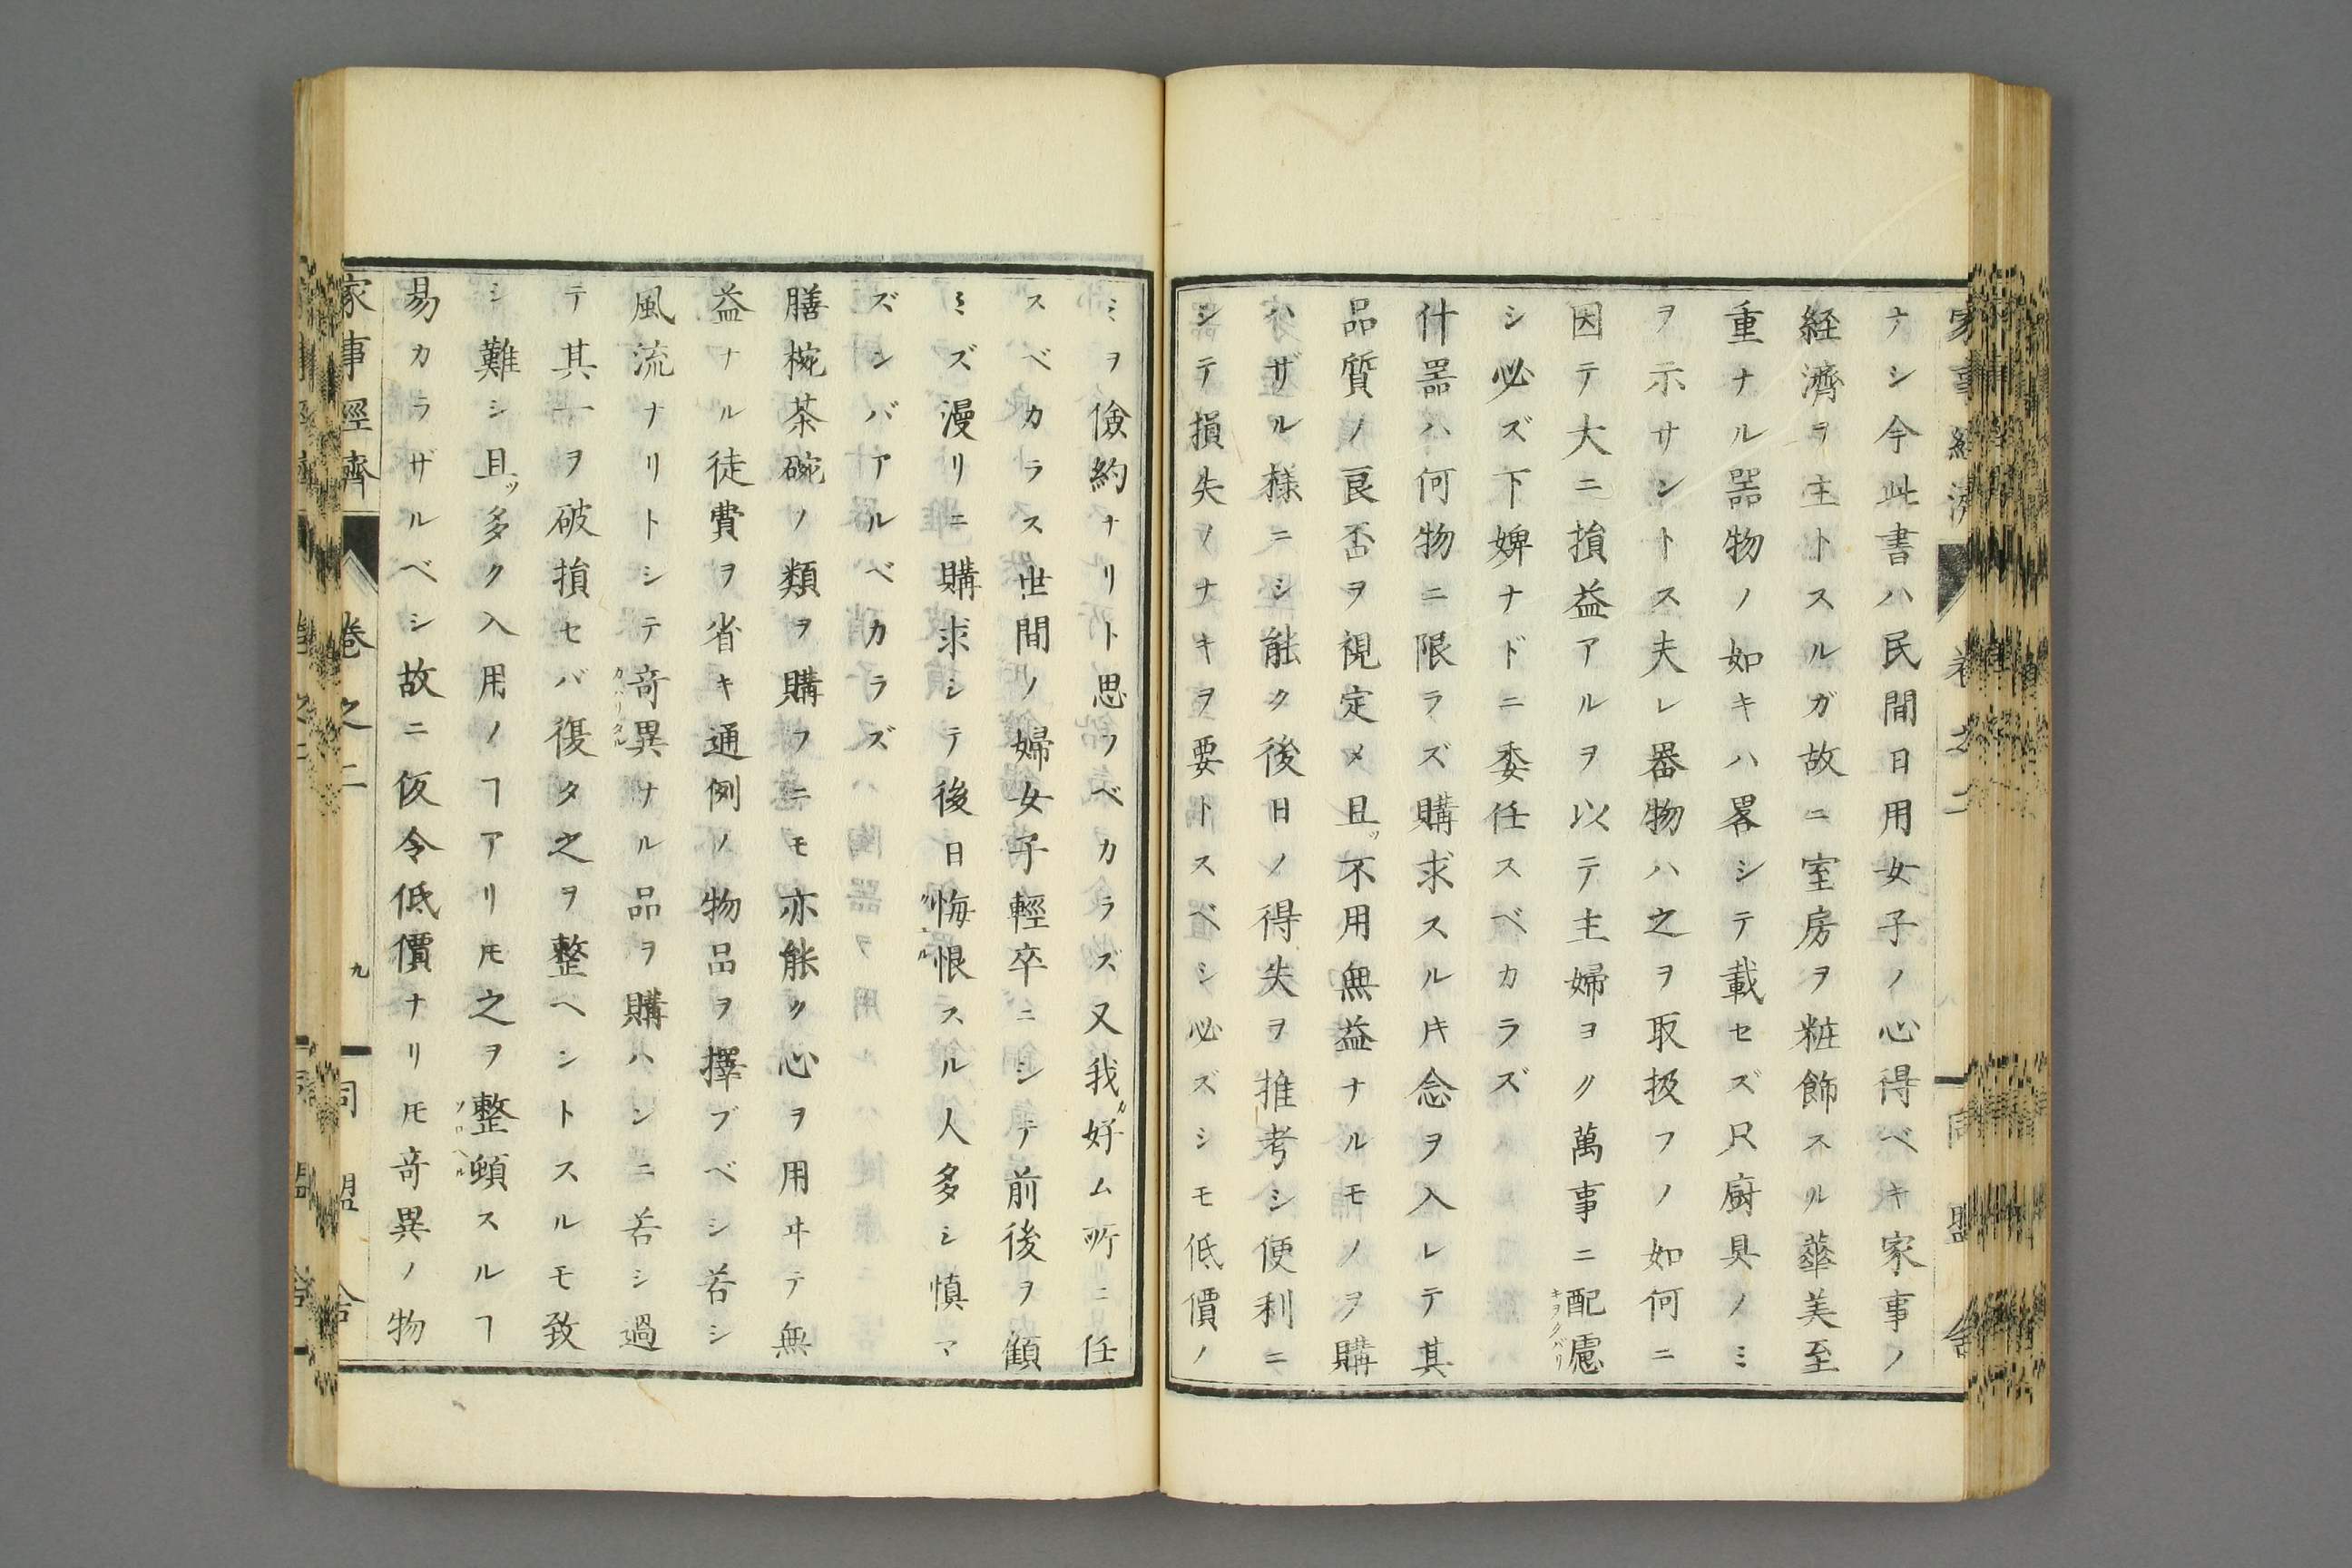 ナシ今此書ハ民間日用女子ノ心得ベキ家事ノ
経濟ヲ主トスルガ故ニ室房ヲ粧飾スル華美至
重ナル器物ノ如キハ畧シテ載セズ只廚具ノミ
ヲ示サントス夫レ器物ハ之ヲ取扱フノ如何ニ
因テ大ニ損益アルヲ以テ主婦ヨク萬事ニ配慮キヲクバリ
シ必ズ下婢ナドニ委任スベカラズ
什器ハ何物ニ限ラズ購求スルキ念ヲ入レテ其
品質ノ良否ヲ視定メ且ツ不用無益ナルモノヲ購
ハザル様ニシ能ク後日ノ得失ヲ推考シ便利ニ
シテ損失ノナキヲ要トスベシ必ズシモ低價ノ
ミヲ儉約ナリト思フベカラズ又我ガ好ム所ニ任
スベカラス世間ノ婦女子輕卒ニシテ前後ヲ顧
ミズ漫リニ購求シテ後日悔恨スル人多シ慎マ
ズンバアルベカラズ
膳椀茶碗ノ類ヲ購フニモ亦能ク心ヲ用ヰテ無
益ナル徒費ヲ省キ通例ノ物品ヲ擇ブベシ若シ
風流ナリトシテ奇異カハリタルナル品ヲ購ハンニ若シ過
テ其一ヲ破損セバ復タ之ヲ整ヘントスルモ致
シ難シ且ツ多ク入用ノヿアリㇳモ之ヲ整頓ソロヘルスルヿ
易カラザルベシ故ニ仮令低價ナリㇳモ奇異ノ物
家事經濟 卷之二 九 同盟舎